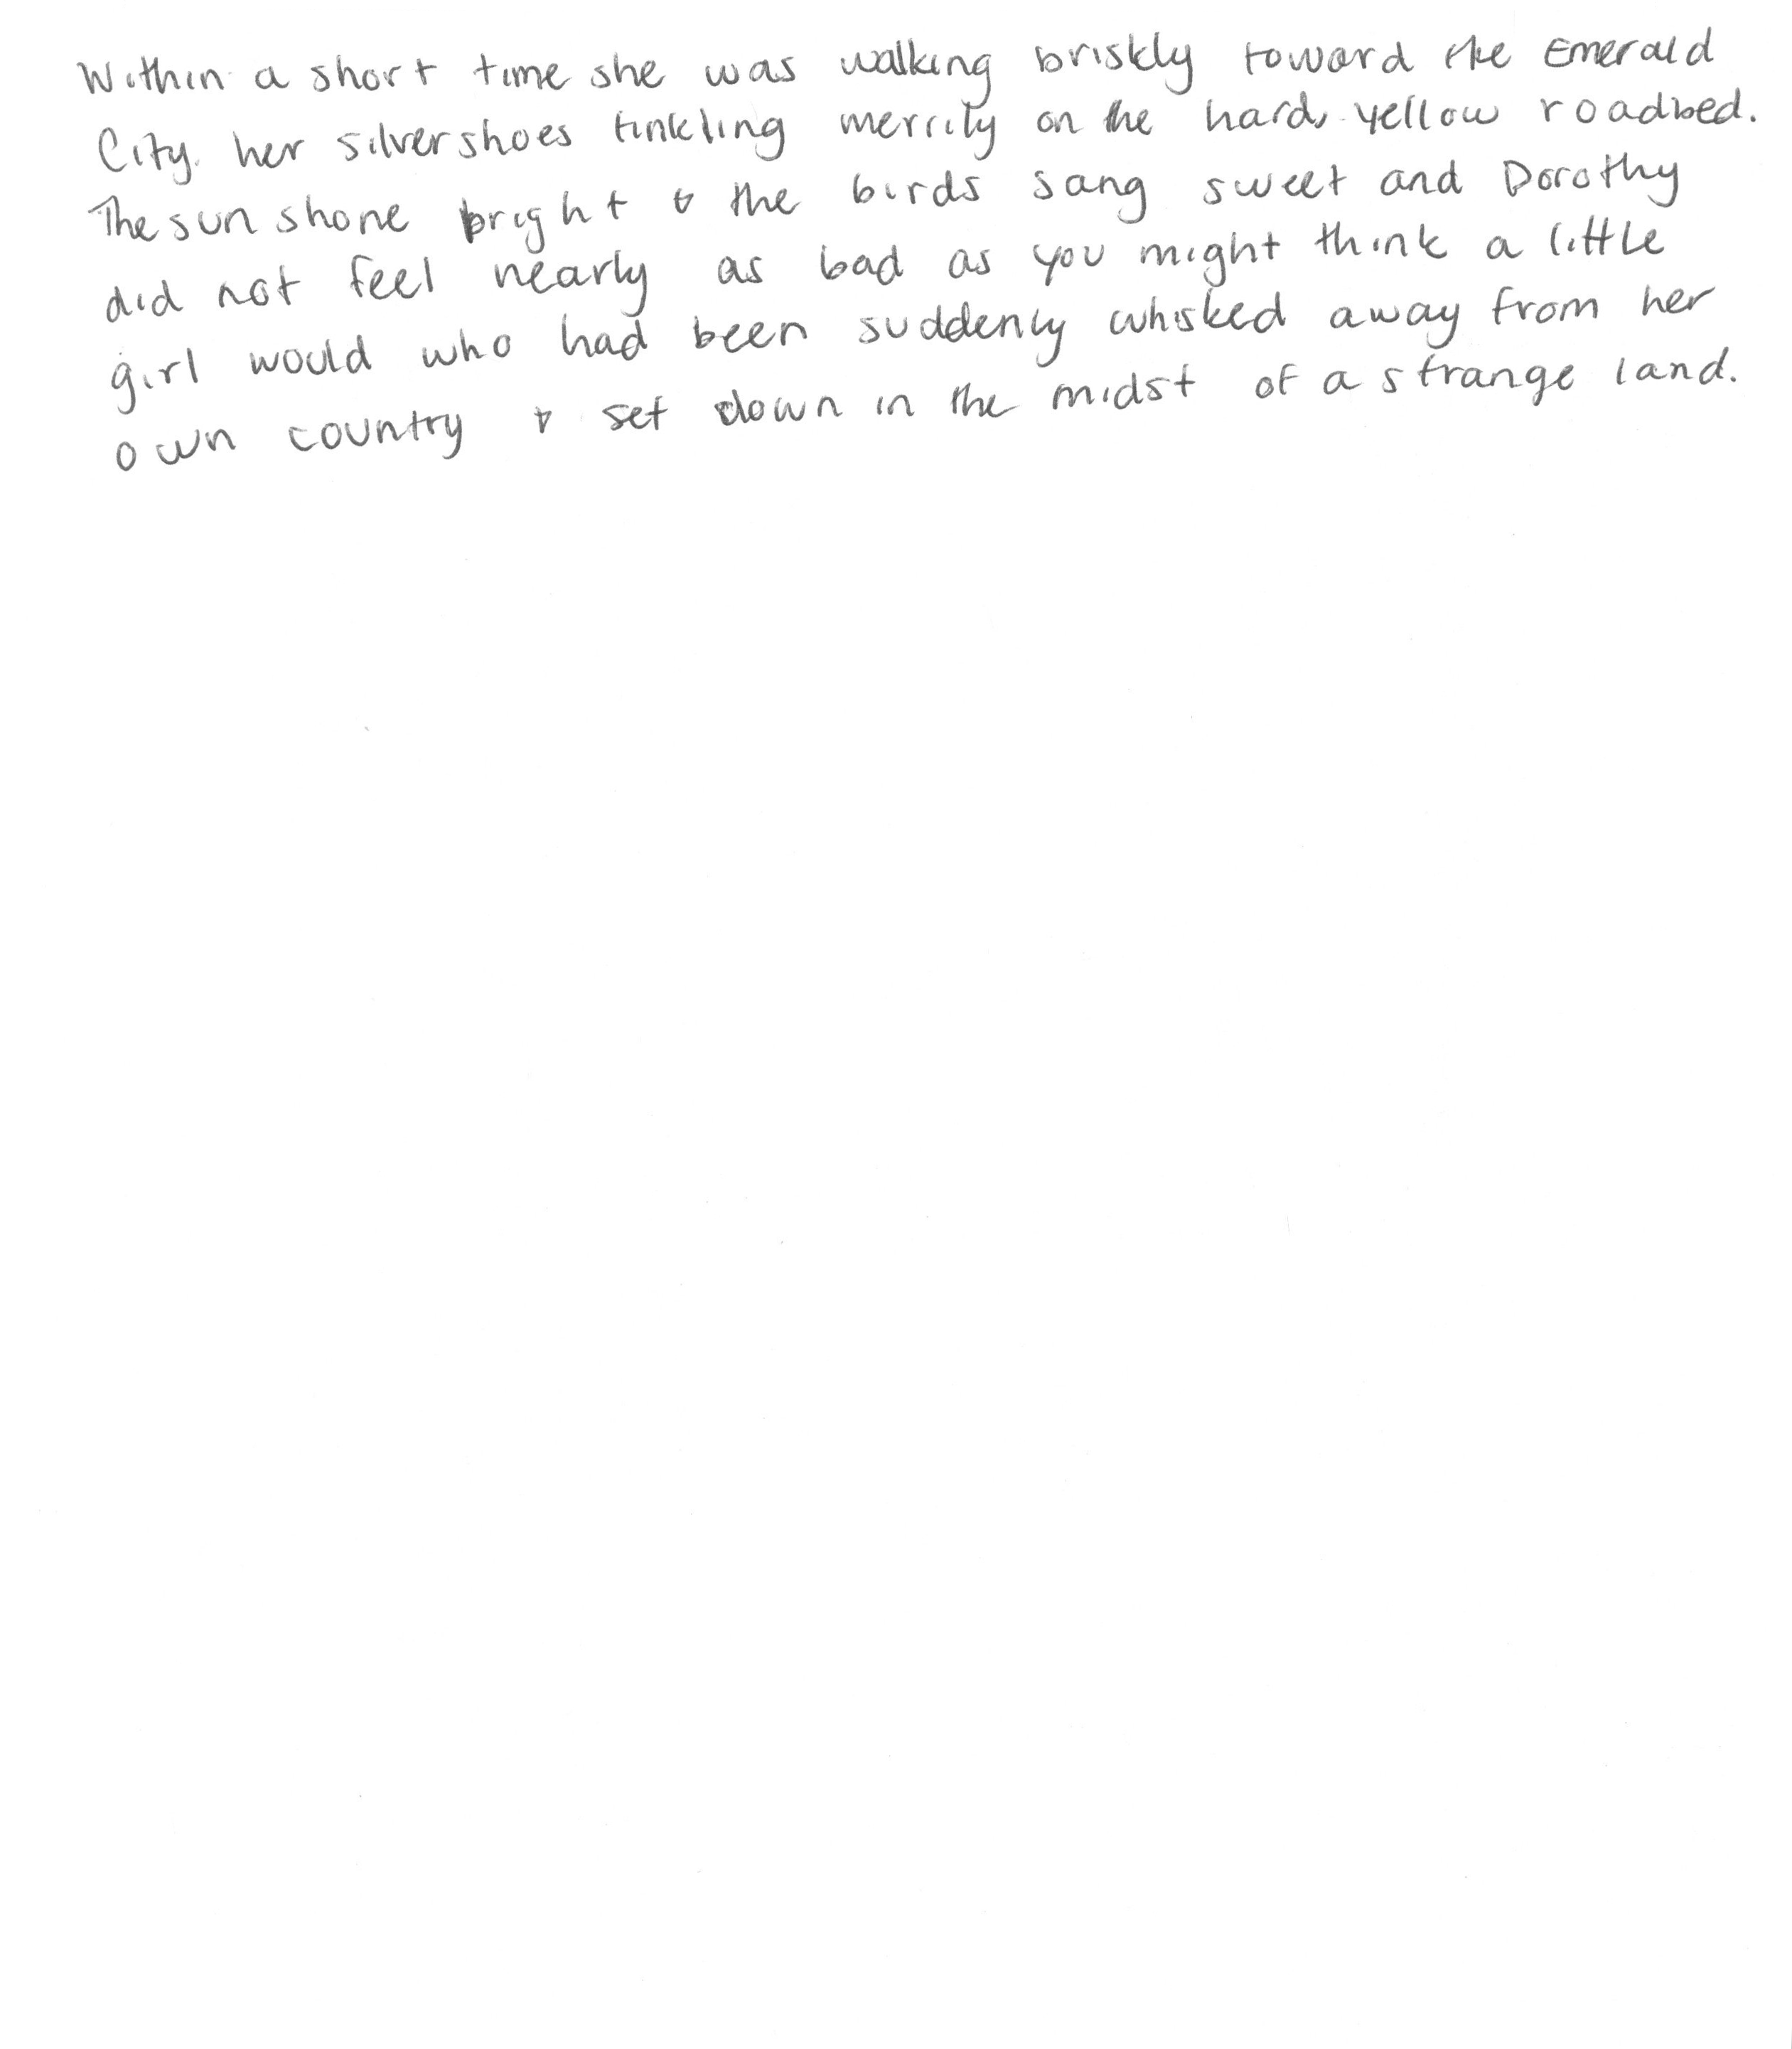 Within a short time she was walking briskly toward the Emerald
City, her silver shoes tinkling merrily on the hard, yellow roadbed.
The sun shone bright & the birds sang sweet and Dorothy
did not feel nearly as bad as you might think a little
girl would who had been suddenly whisked away from her
own country & set down in the midst of a strange land.